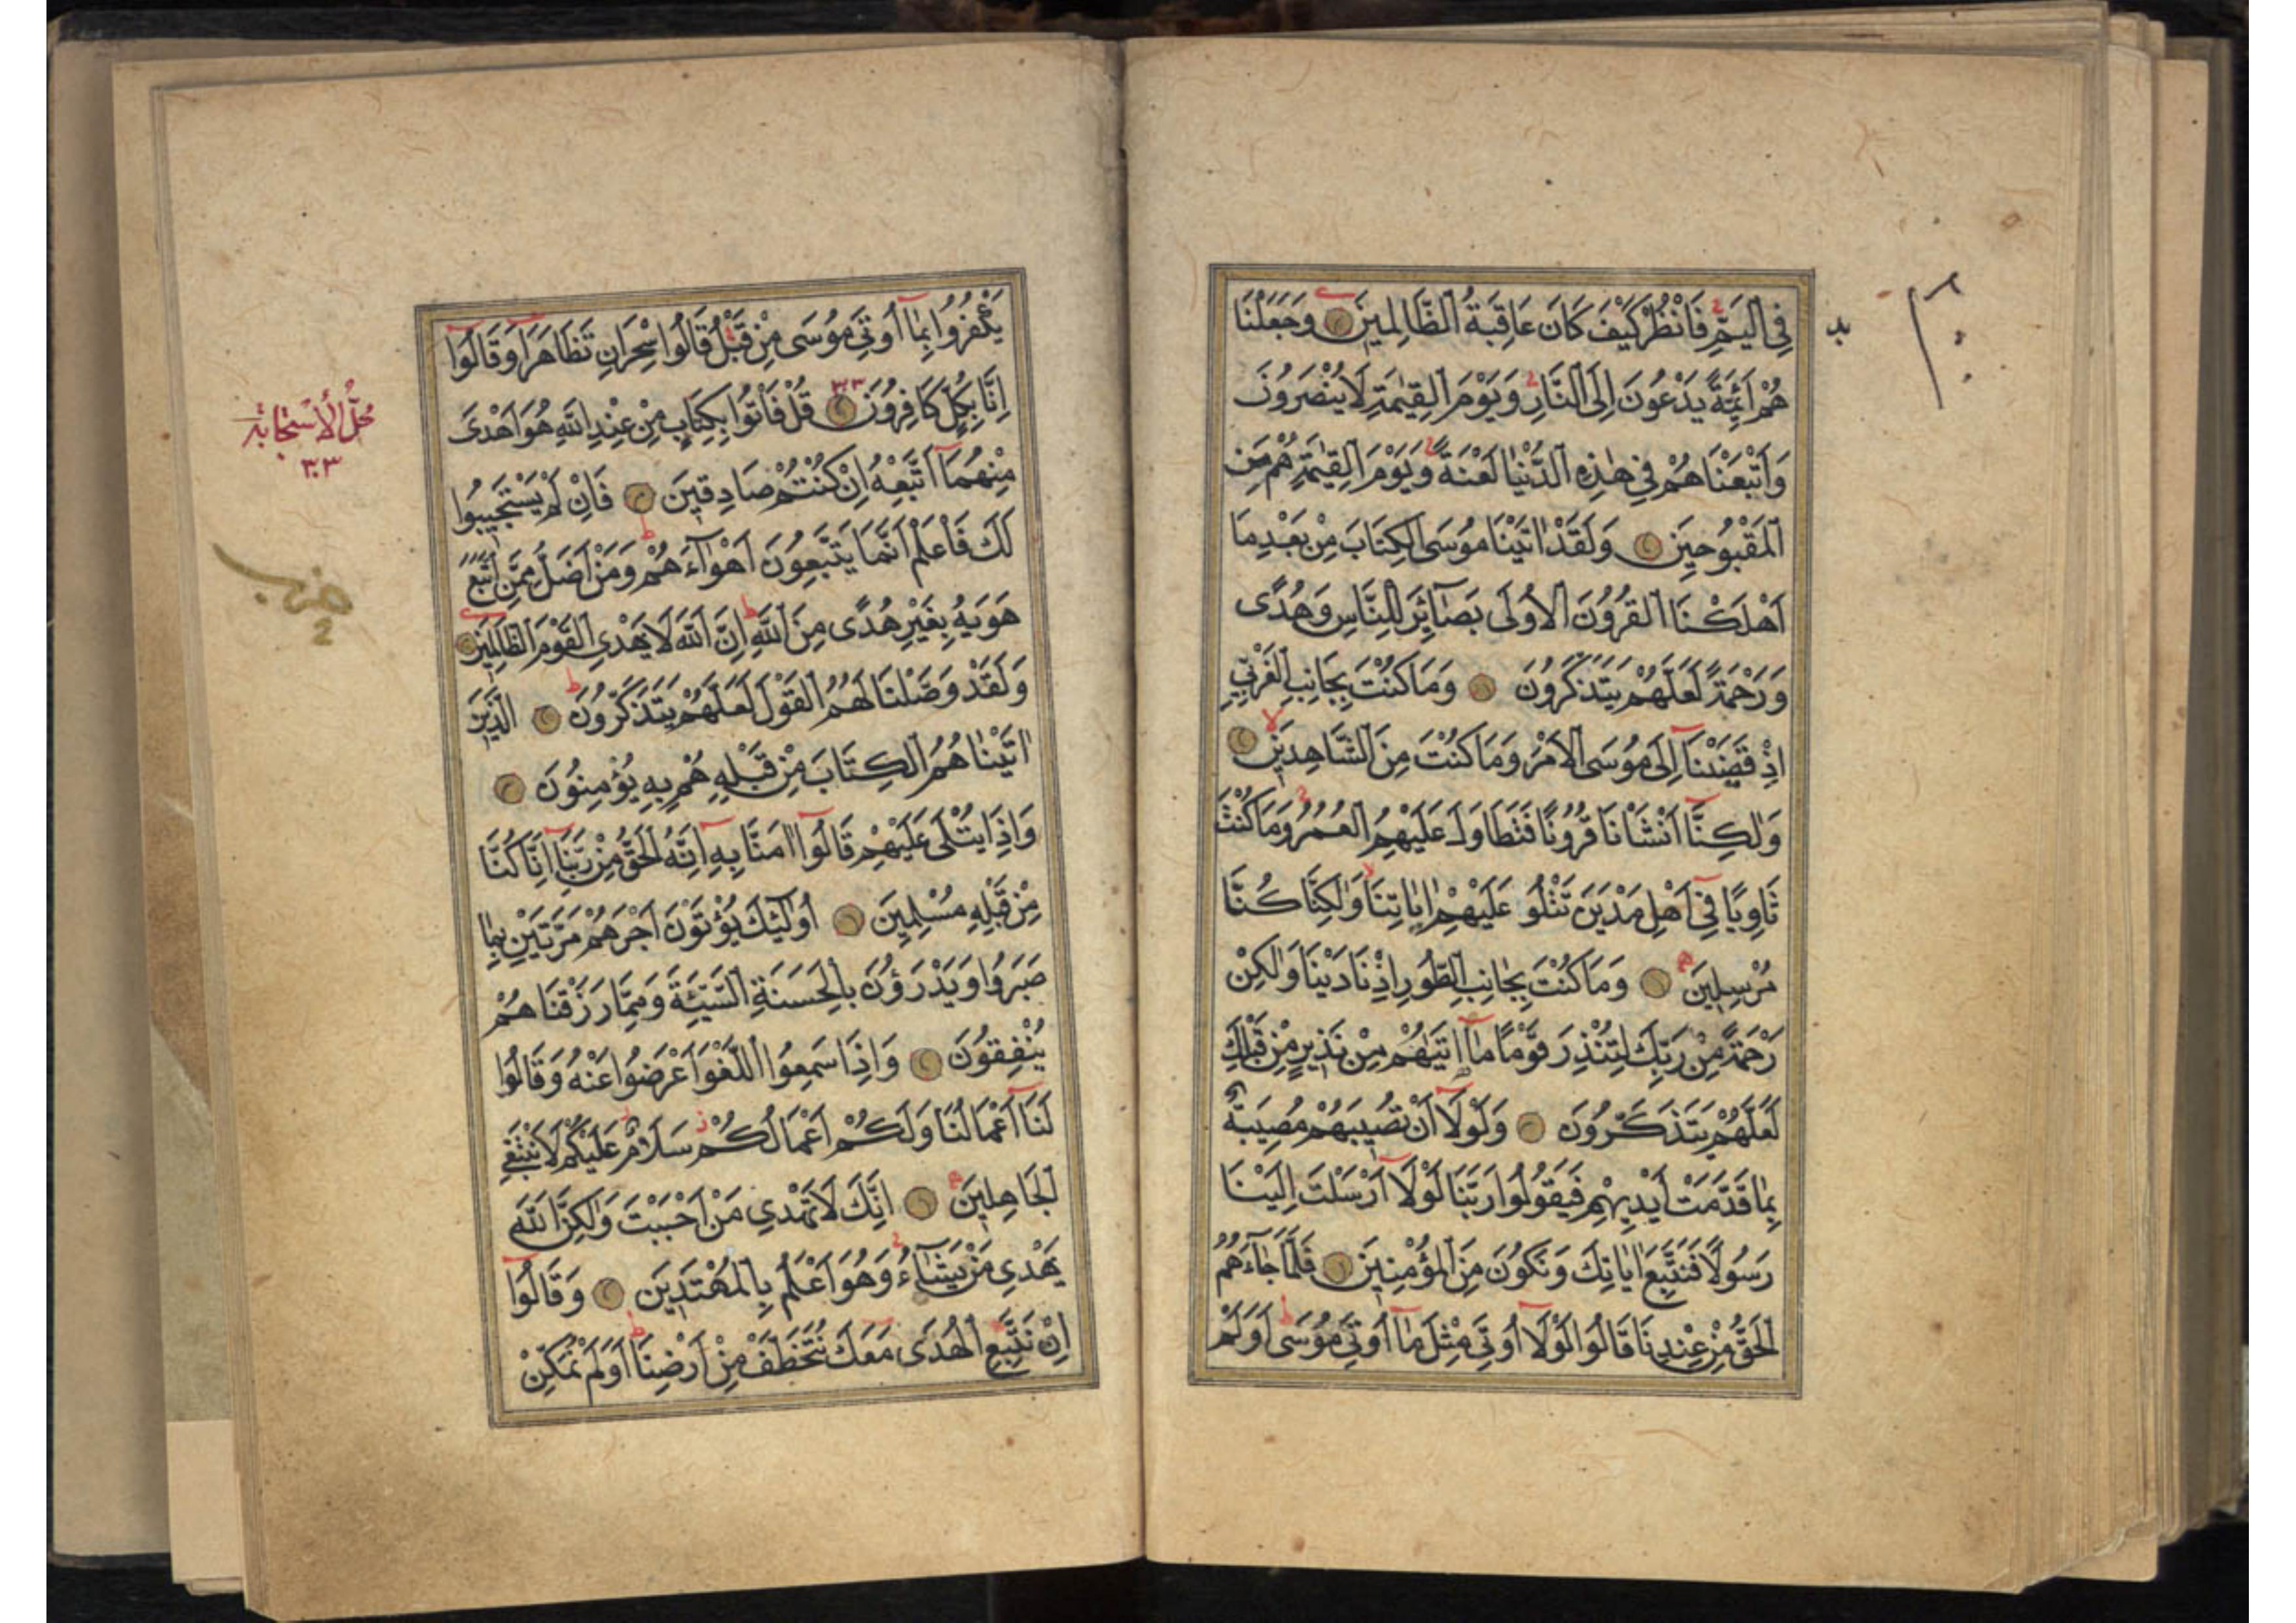 فِي الْيَمِّ فَانْظُرْ كَيْفَ كَانَ عَاقِبَةُ الظَّالِمِينَ وَجَعَلْنَا
هُمْ اَئِمَّةً يَدْعُونَ اِلَى النَّارِ وَيَوْمَ الْقِيٰمَةِ لَا يُنْصَرُونَ
وَاَتْبَعْنَاهُمْ فِي هٰذِهِ الدُّنْيَا لَعْنَةً وَيَوْمَ الْقِيٰمَةِ هُمْ مِنَ
الْمَقْبُوحِينَ وَلَقَدْ اٰتَيْنَا مُوسَى الْكِتَابَ مِنْ بَعْدِ مَا
اَهْلَكْنَا الْقُرُونَ الْاُولَى بَصَآئِرَ لِلنَّاسِ وَهُدًى
وَرَحْمَةً لَعَلَّهُمْ يَتَذَكَّرُونَ وَمَا كُنْتَ بِجَانِبِ الْغَرْبِيِّ
اِذْ قَضَيْنَا اِلَى مُوسَى الْاَمْرَ وَمَا كُنْتَ مِنَ الشَّاهِدِينَ
وَلٰكِنَّا اَنْشَاْنَا قُرُونًا فَتَطَاوَلَ عَلَيْهِمُ الْعُمُرُ وَمَا كُنْتَ
ثَاوِيًا فِي اَهْلِ مَدْيَنَ تَتْلُو عَلَيْهِمْ اٰيَاتِنَا وَلٰكِنَّا كُنَّا
مُرْسِلِينَ وَمَا كُنْتَ بِجَانِبِ الطُّورِ اِذْ نَادَيْنَا وَلٰكِنْ
رَحْمَةً مِنْ رَبِّكَ لِتُنْذِرَ قَوْمًا مَا اَتٰيهُمْ مِنْ نَذِيرٍ مِنْ قَبْلِكَ
لَعَلَّهُمْ يَتَذَكَّرُونَ وَلَوْلَا اَنْ تُصِيبَهُمْ مُصِيبَةٌ
بِمَا قَدَّمَتْ اَيْدِيهِمْ فَيَقُولُوا رَبَّنَا لَوْلَا اَرْسَلْتَ اِلَيْنَا
رَسُولًا فَنَتَّبِعَ اٰيَاتِكَ وَنَكُونَ مِنَ الْمُؤْمِنِينَ فَلَمَّا جَآءَهُمُ
الْحَقُّ مِنْ عِنْدِنَا قَالُوا لَوْلَا اُوتِيَ مِثْلَ مَا اُوتِيَ مُوسَى اَوَلَمْ
يَكْفُرُوا بِمَا اُوتِيَ مُوسَى مِنْ قَبْلُ قَالُوا سِحْرَانِ تَظَاهَرَا وَقَالُوا
اِنَّا بِكُلٍّ كَافِرُونَ قُلْ فَاْتُوا بِكِتَابٍ مِنْ عِنْدِ اللّٰهِ هُوَ اَهْدَى
مِنْهُمَا اَتَّبِعْهُ اِنْ كُنْتُمْ صَادِقِينَ فَاِنْ لَمْ يَسْتَجِيبُوا
لَكَ فَاعْلَمْ اَنَّمَا يَتَّبِعُونَ اَهْوَآءَهُمْ وَمَنْ اَضَلُّ مِمَّنِ اتَّبَعَ
هَوٰيهُ بِغَيْرِ هُدًى مِنَ اللّٰهِ اِنَّ اللّٰهَ لَا يَهْدِي الْقَوْمَ الظَّالِمِينَ
وَلَقَدْ وَصَّلْنَا لَهُمُ الْقَوْلَ لَعَلَّهُمْ يَتَذَكَّرُونَ الَّذِينَ
اٰتَيْنَاهُمُ الْكِتَابَ مِنْ قَبْلِهِ هُمْ بِهِ يُؤْمِنُونَ
وَاِذَا يُتْلَى عَلَيْهِمْ قَالُوا اٰمَنَّا بِهِ اِنَّهُ الْحَقُّ مِنْ رَبِّنَا اِنَّا كُنَّا
مِنْ قَبْلِهِ مُسْلِمِينَ اُولٰئِكَ يُؤْتَوْنَ اَجْرَهُمْ مَرَّتَيْنِ بِمَا
صَبَرُوا وَيَدْرَؤُنَ بِالْحَسَنَةِ السَّيِّئَةَ وَمِمَّا رَزَقْنَاهُمْ
يُنْفِقُونَ وَاِذَا سَمِعُوا اللَّغْوَ اَعْرَضُوا عَنْهُ وَقَالُوا
لَنَا اَعْمَالُنَا وَلَكُمْ اَعْمَالُكُمْ سَلَامٌ عَلَيْكُمْ لَا نَبْتَغِي
الْجَاهِلِينَ اِنَّكَ لَا تَهْدِي مَنْ اَحْبَبْتَ وَلٰكِنَّ اللّٰهَ
يَهْدِي مَنْ يَشَآءُ وَهُوَ اَعْلَمُ بِالْمُهْتَدِينَ وَقَالُوا
اِنْ نَتَّبِعِ الْهُدَى مَعَكَ نُتَخَطَّفْ مِنْ اَرْضِنَا اَوَلَمْ نُمَكِّنْ
مَحَلُّ الْاُسْتِجَابَة
٣٠٣
حزب